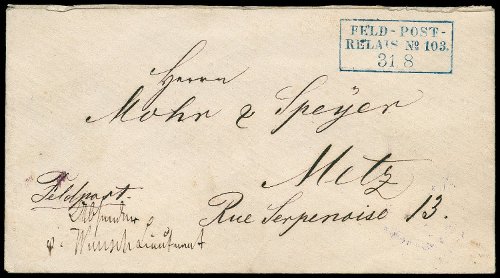 FELD-POST-
RELAIS № 103.
31 8
Herrn
Mohr & Speyer
Metz
Rue Serpenoise 13.
Feldpost.
Absender
v. Wunsch Lieutenant